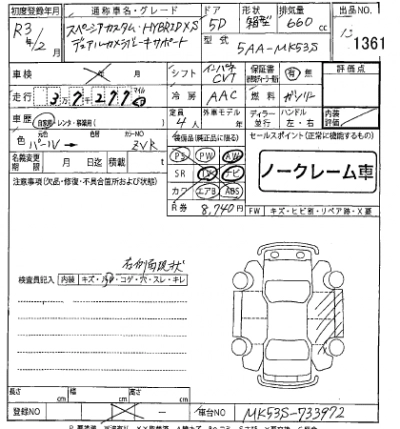 初度登録年月 通称車名・グレード ドア 形状 排気量 出品NO.
R3年/2月 スペーシアカスタム・HYBRID XS 5D 箱型 660cc
デュアルカメラブレーキサポート 型式 5AA-MK53S 1361
車検 年 月 シフト インパネCVT 保証書 有 無 評価点
走行 3万7千277 マイル 冷房 AAC 燃料 ガソリン
車歴 自家用・レンタ・事業用( ) 定員 4人 外車モデル 年 ディーラー 並行 ハンドル 左・右 内装評価
色 元色 色替 カラーNO 装備品(純正品に限る) セールスポイント(正常に機能するもの)
パール → ZVR PS PW AW
名義変更期限 月 日迄 積載 t SR ナビ ノークレーム車
注意事項(欠品・修復・不具合箇所および状態) カワ エアB ABS
R券 8,740円 FW キズ・ヒビ有・リペア跡・X要
右側面現状
検査員記入 内装 キズ・ ・コゲ・穴・スレ・キレ
長さ cm 幅 cm 高さ cm
登録NO - 車台NO MK53S-733972